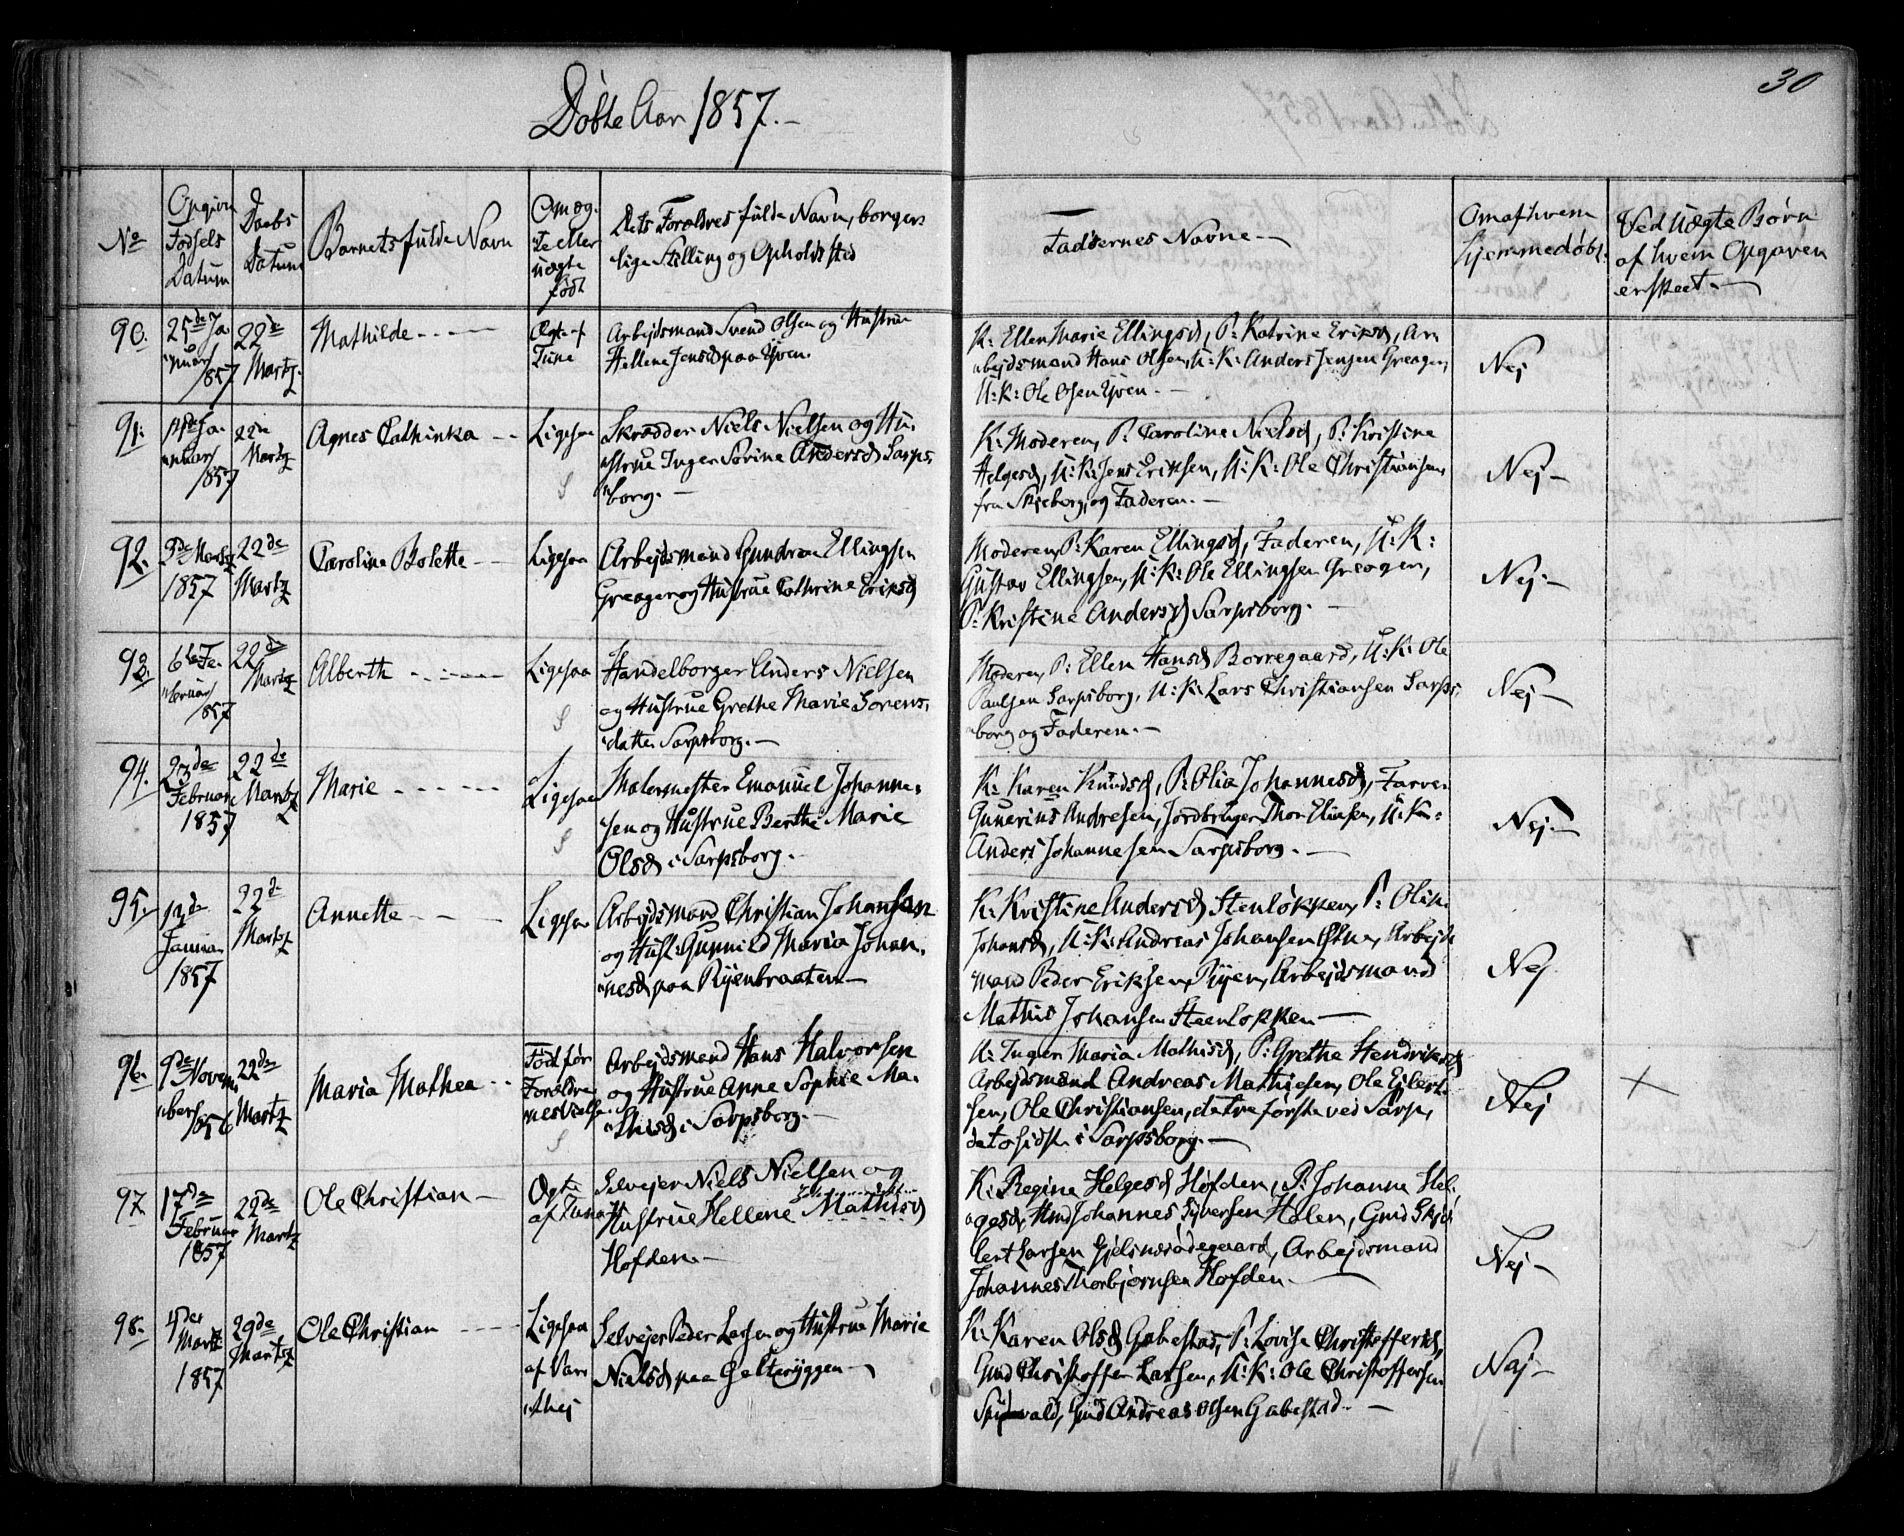 Døbte Aar 1857.-
30
No
Opgivn
Fødsels
Datum
Daabs
Datum
Barnets fulde Navn
Om æg-
te eller
uægte
født
Dets Forældres fulde Navn, borger-
lige Stilling og Opholdssted
Faddernes Navne.
Om af hvem
hjemmedøbt.
Ved uægte Børn
af hvem Opgaven
er skeet.
90.
25de Ja
nuar
1857
22de
Martz.
Mathilde
Ægte af
Tune
Arbejdsmand Svend Olsen og Hustrue
Hellene Jensd paa
K: Ellen Marie Ellingsd, P: Katrine Eriksd, Ar
bejdsmand Hans Olsen, U: K: Anders Jensen Greager,
U: K: Ole Olsen
Nej
91.
Ja
nuar
1857
22de
Martz
Agnes Cathinka
Ligesaa
S
Skrædder Niels Nielsen og Hu
strue Inger Sorine Andersd Sarps
borg.
K. Moderen, P. Caroline Nielsd, P: Kristine
Helgesd, U: K: Jens Eriksen, U: K: Ole Christiansen
fra Skjeberg, og Faderen.
Nej
92.
Martz
1857
22de
Martz
Caroline Bolette
Ligesaa
Arbejdsmand Gundran Ellingsen
Greager og Hustrue Cathrine Eriksd
Moderen, P: Karen Ellingsd, Faderen, U: K:
Gustav Ellingsen, U: K: Ole Ellingsen Greagen,
P: Kristine Andersd Sarpsborg.
Nej.
93.
6te Fe
bruar
1857
22de
Martz
Alberth
Ligesaa
S
Handelborger Anders Nielsen
og Hustrue Grethe Marie Sorens
datter Sarpsborg.
Moderen, P: Ellen Hansd Borregaard, U: K: Ole
Paulsen Sarpsborg, U: K: Lars Christiansen Sarps
borg og Faderen.
Nej
94.
23de
Februar
1857
22de
Martz
Marie
Ligesaa
S
Malermester Emanuel Johanne
sen og Hustrue Berthe Marie
Olsd i Sarpsborg.
K: Karen Knudsd, P: Olia Johannesd, Farver
Gunerius Andresen, Jordbruger Thor Eliasen, U: K:
Anders Johannesen Sarpsborg.
Nej.
95.
13de
Januar
1857
22de
Martz
Annette
Ligesaa
Arbejdsmand Christian Johansen
og Hust: Gunnild Maria Johan
nesd paa Ryenbraaten
K: Kristine Andersd Stenløkken, P: Olin
Johansd, U: K: Andreas Johansen Østne, Arbejds
mand Peder Eriksen, Ryen, Arbejdsmand
Mathis Johansen Steenløkken
Nej
96.
9de Novem
ber
1856
22de
Martz
Maria Mathea
Født før
Foræld
nes Vielse
S
Arbejdsmand Hans Halvorsen
og Hustrue Anne Sophie Ma
thisd i Sarpsborg.
K: Inger Maria Mathisd, P: Grethe Hendriksd
Arbejdsmand Andreas Mathiesen, Ole Eilert
sen, Ole Christiansen, de tre første ved Sarp,
de to sidste i Sarpsborg.
Nej
97
17de
Februar
1857
22de
Martz
Ole Christian
Ægte
af Tune
Selvejer Niels Nielsen og
Hustrue Hellene Mathisd
Høfden.
K: Regine Helgesd Høfden, P: Johanne Hel
gesd, Gmd Johannes Syversen Holen, Gmd
bert Larsen Gjelsnesødegaard, Arbejdsmand
Johannes Thorbjørnsen Høfden.
Nej
98.
Martz
1857
29de
Martz
Ole Christian
Ligesaa
af Var
thej
Selvejer Peder Larsen og Hustrue Marie
Nielsd paa Galteryggen
K: Karen Olsd Gabestad, P: Lovise Christoffersd,
Gmd Christoffer Larsen, U: K: Ole Christoffersen
Gmd Andreas Olsen Gabestad.
Nej